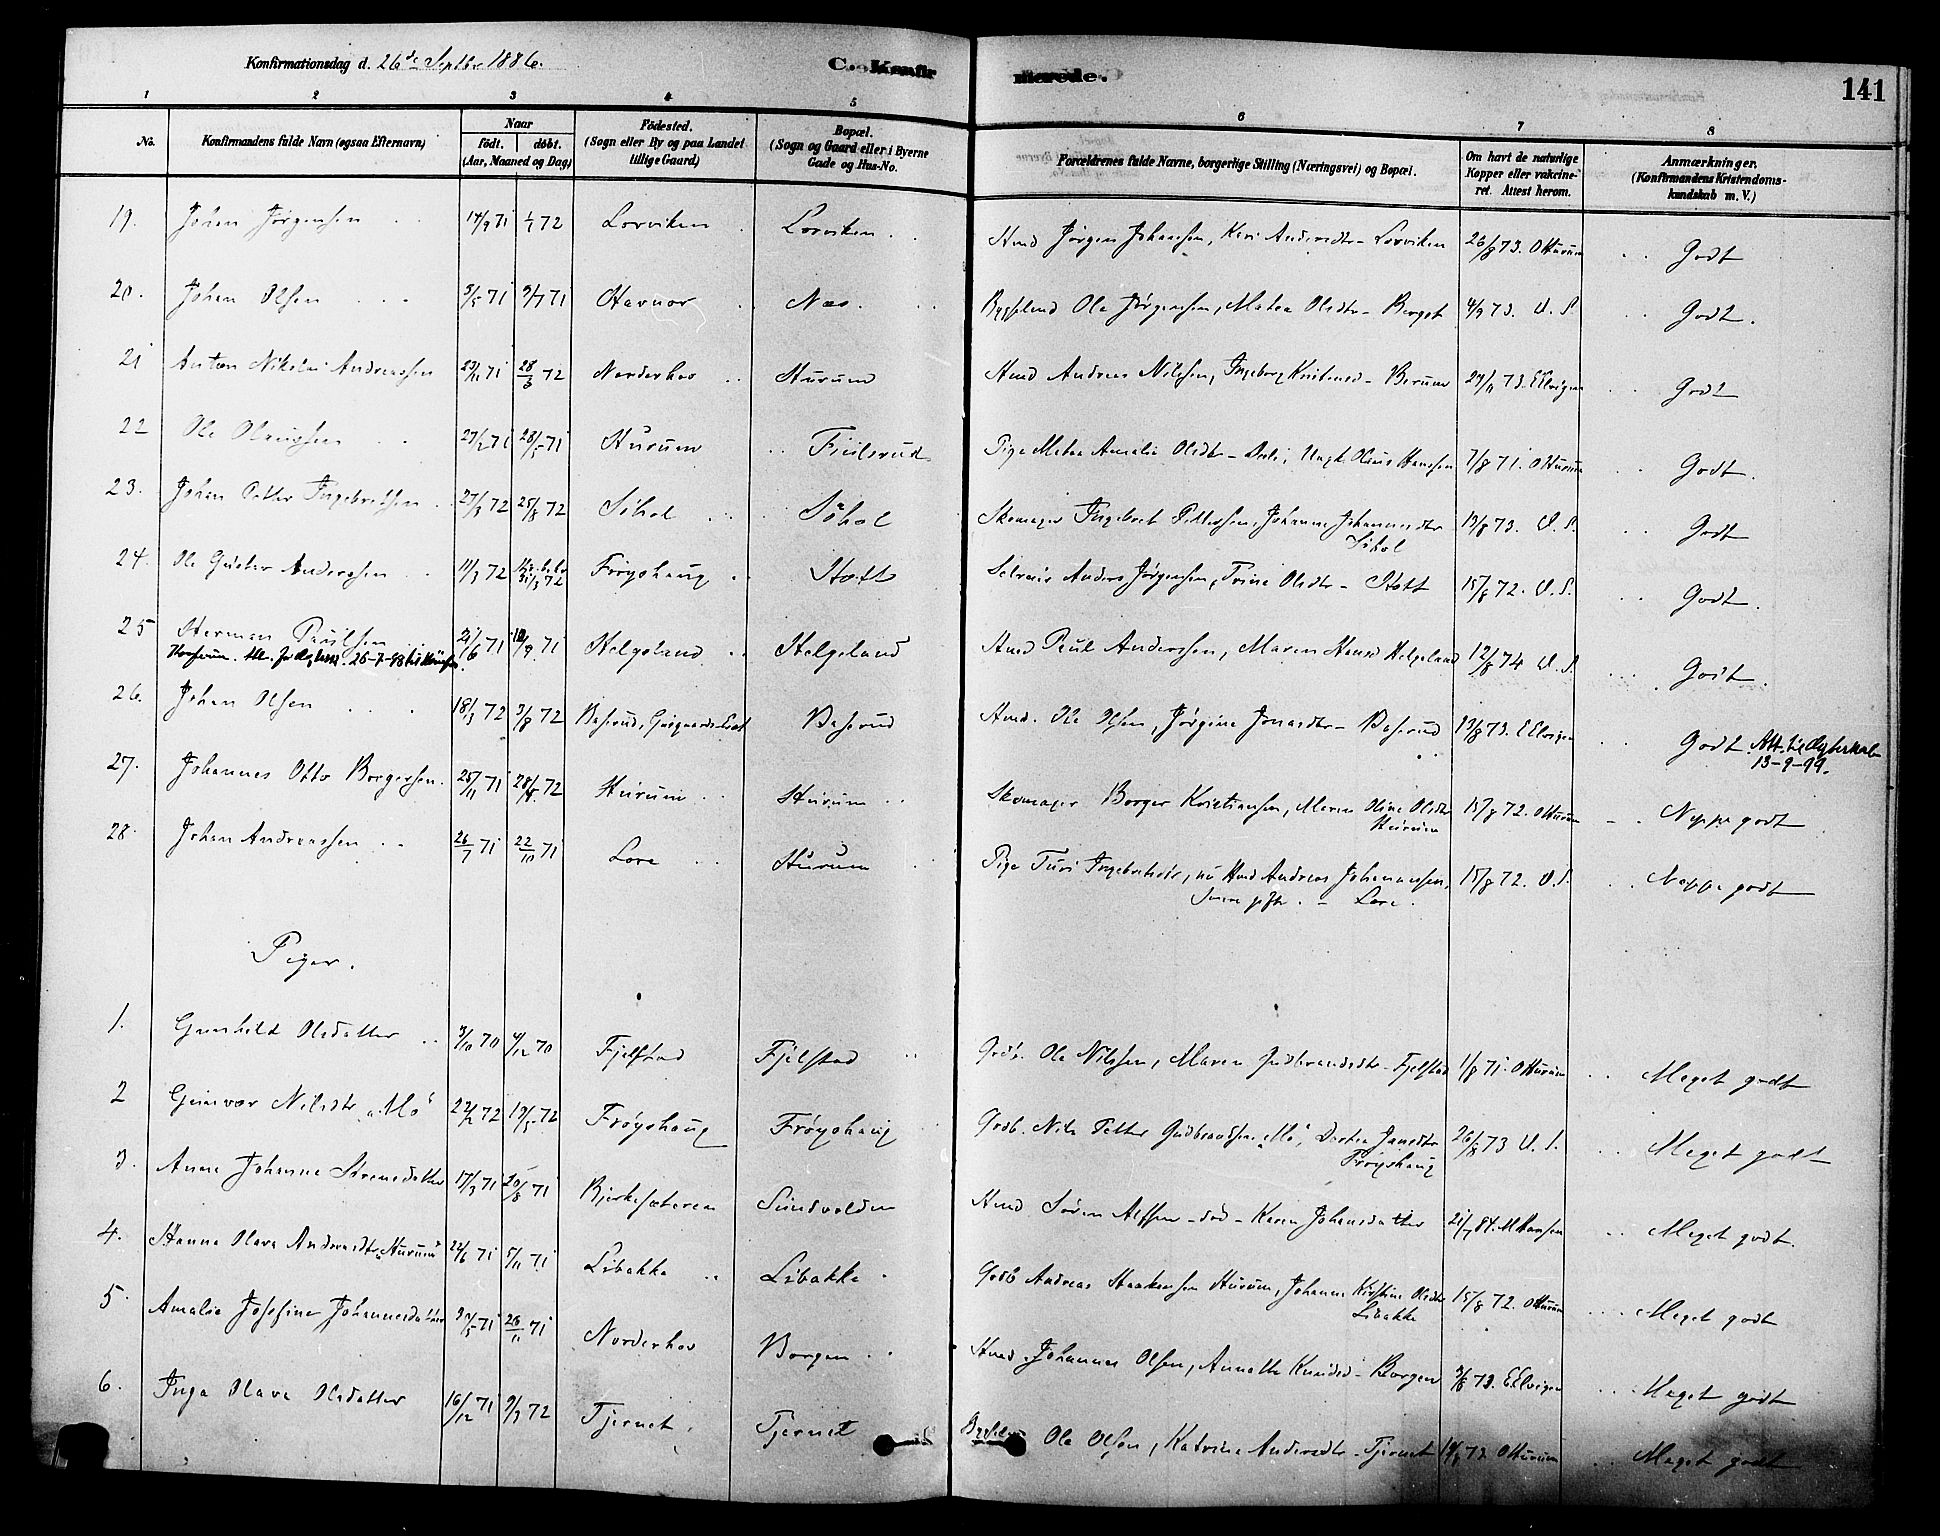 Konfirmationsdag d. 26de Septbr 1886.
C. Konfirmerede.
141
1 2 3 4 5 6 7 8
No.
Konfirmandens fulde Navn (ogsaa Efternavn)
Naar
födt. döbt.
(Aar, Maaned og Dag)
Födested.
(Sogn eller By og paa Landet
tillige Gaard)
Bopæl.
(Sogn og Gaard eller i Byerne
Gade og Hus-No.
Forældrenes fulde Navne, borgerlige Stilling (Næringsvei) og Bopæl.
Om havt de naturlige
Kopper eller vakcine-
ret. Attest herom.
Anmærkninger.
(Konfirmandens Kristendoms-
kundskab m. V.)
19. Johan Jørgensen 14/9 71 72 Lorviken Lorviken Hmd Jørgen Johansen, Kari Andersdtr - Lorviken 26/8 73. OHurum Godt
20. Johan Olsen 3/5 71 9/7 71 Havnor Næs Bygselmd Ole Jørgensen, Matea Olsdtr - Berget 4/9 73. V.S. Godt.
21 Anton Nikolai Andreassen 71 28/3 72 Norderhov Hurum Hmd Andreas Nilssen, Ingeborg Kristensd - Berum 27/11 73. EElvigen Godt
22 Ole Olaussen 27/2 71 28/5 71 Hurum Fiulsrud Pige Matea Amalie Olsdtr - Ungk. Olaus Hanssen 7/8 71. OHurum Godt.
23. Johan Petter Ingebretsen 27/3 72 25/8 72 Søhol Søhol Skomager Ingebret Pettersen, Johanne Johannesdtr 13/8 73. V.S. Godt
Søhol
24. Ole Gustav Anderssen 11/3 72 31/3 72 Frøyshaug Støtt Selveier Anders Jørgensen, Trine Olsdtr - Støtt 15/8 72. V.S. Godt.
25 Herman Paulsen 21/6 71 10/9 71 Helgeland Helgeland Hmd Paul Anderssen, Maren Hansd Helgeland 12/8 74 V.S. Godt.
26. Johan Olsen 18/3 72 3/8 72 Baserud, Basrud Hmd. Ole Olsen, Jørgine Jonasdtr - Baserud 13/8 73. EElvigen Godt Att. til Ægteskab
13-9-99.
27. Johannes Otto Borgersen. 25/11 71 28/4 72 Hurum Hurum Skomager Borger Kristiansen, Maren Oline Olsdtr 15/8 72. OHurum Neppe godt
Hurum
28. Johan Andreassen 26/7 71 22/10 71 Lore Hurum Pige Turi Ingebretsdtr, nu Hmd Andreas Johannesen, 15/8 72. V.S. Neppe godt
- Lore.
Piger.
1. Gunhild Olsdatter 3/10 70 4/12 70 Fjelstad Fjelstad Grdb. Ole Nilssen, Maren Gudbrandsdtr - Fjelstad 1/8 71. OHurum Meget godt
2 Gunvor Nilsdtr "Mo" 22/2 72 19/5 72 Frøyshaug Frøyshaug Grdb. Nils Petter Gudbrandsen "Mo", Dortea Jansdtr 26/8 73 V.S. Meget godt
Frøyshaug
3. Anne Johanne Sørensdatter 17/3 71 20/8 71 Bjerkesæteren Sundvolden Hmd Søren Alfsen - død - Karen Johansdatter 21/7 84. MHansen Meget godt.
4. Hanna Olava Andreasdtr "Hurum" 22/6 71 5/11 71 Libakke Libakke Grdb Andreas Haakensen Hurum, Johanne Kirstine Olsdtr 15/8 72. OHurum Meget godt
Libakke
5. Amalie Josefine Johannesdatter 20/5 71 26/11 71 Norderhov Borgen Hmd Johannes Olsen, Annette Knudsd - Borgen 3/8 73. EElvigen Meget godt
6. Inga Olava Olsdatter 16/12 71 9/3 72 Tjernet Tjernet Bygselmd Ole Olsen, Katrine Andersdtr - Tjernet 73 OHurum Meget godt